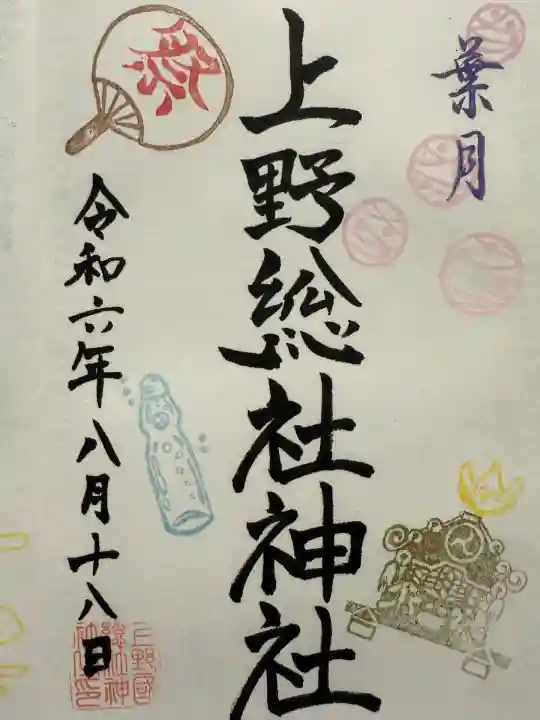 葉月
上野総社神社
祭
令和六年八月十八日
上野國
総社神
社之印